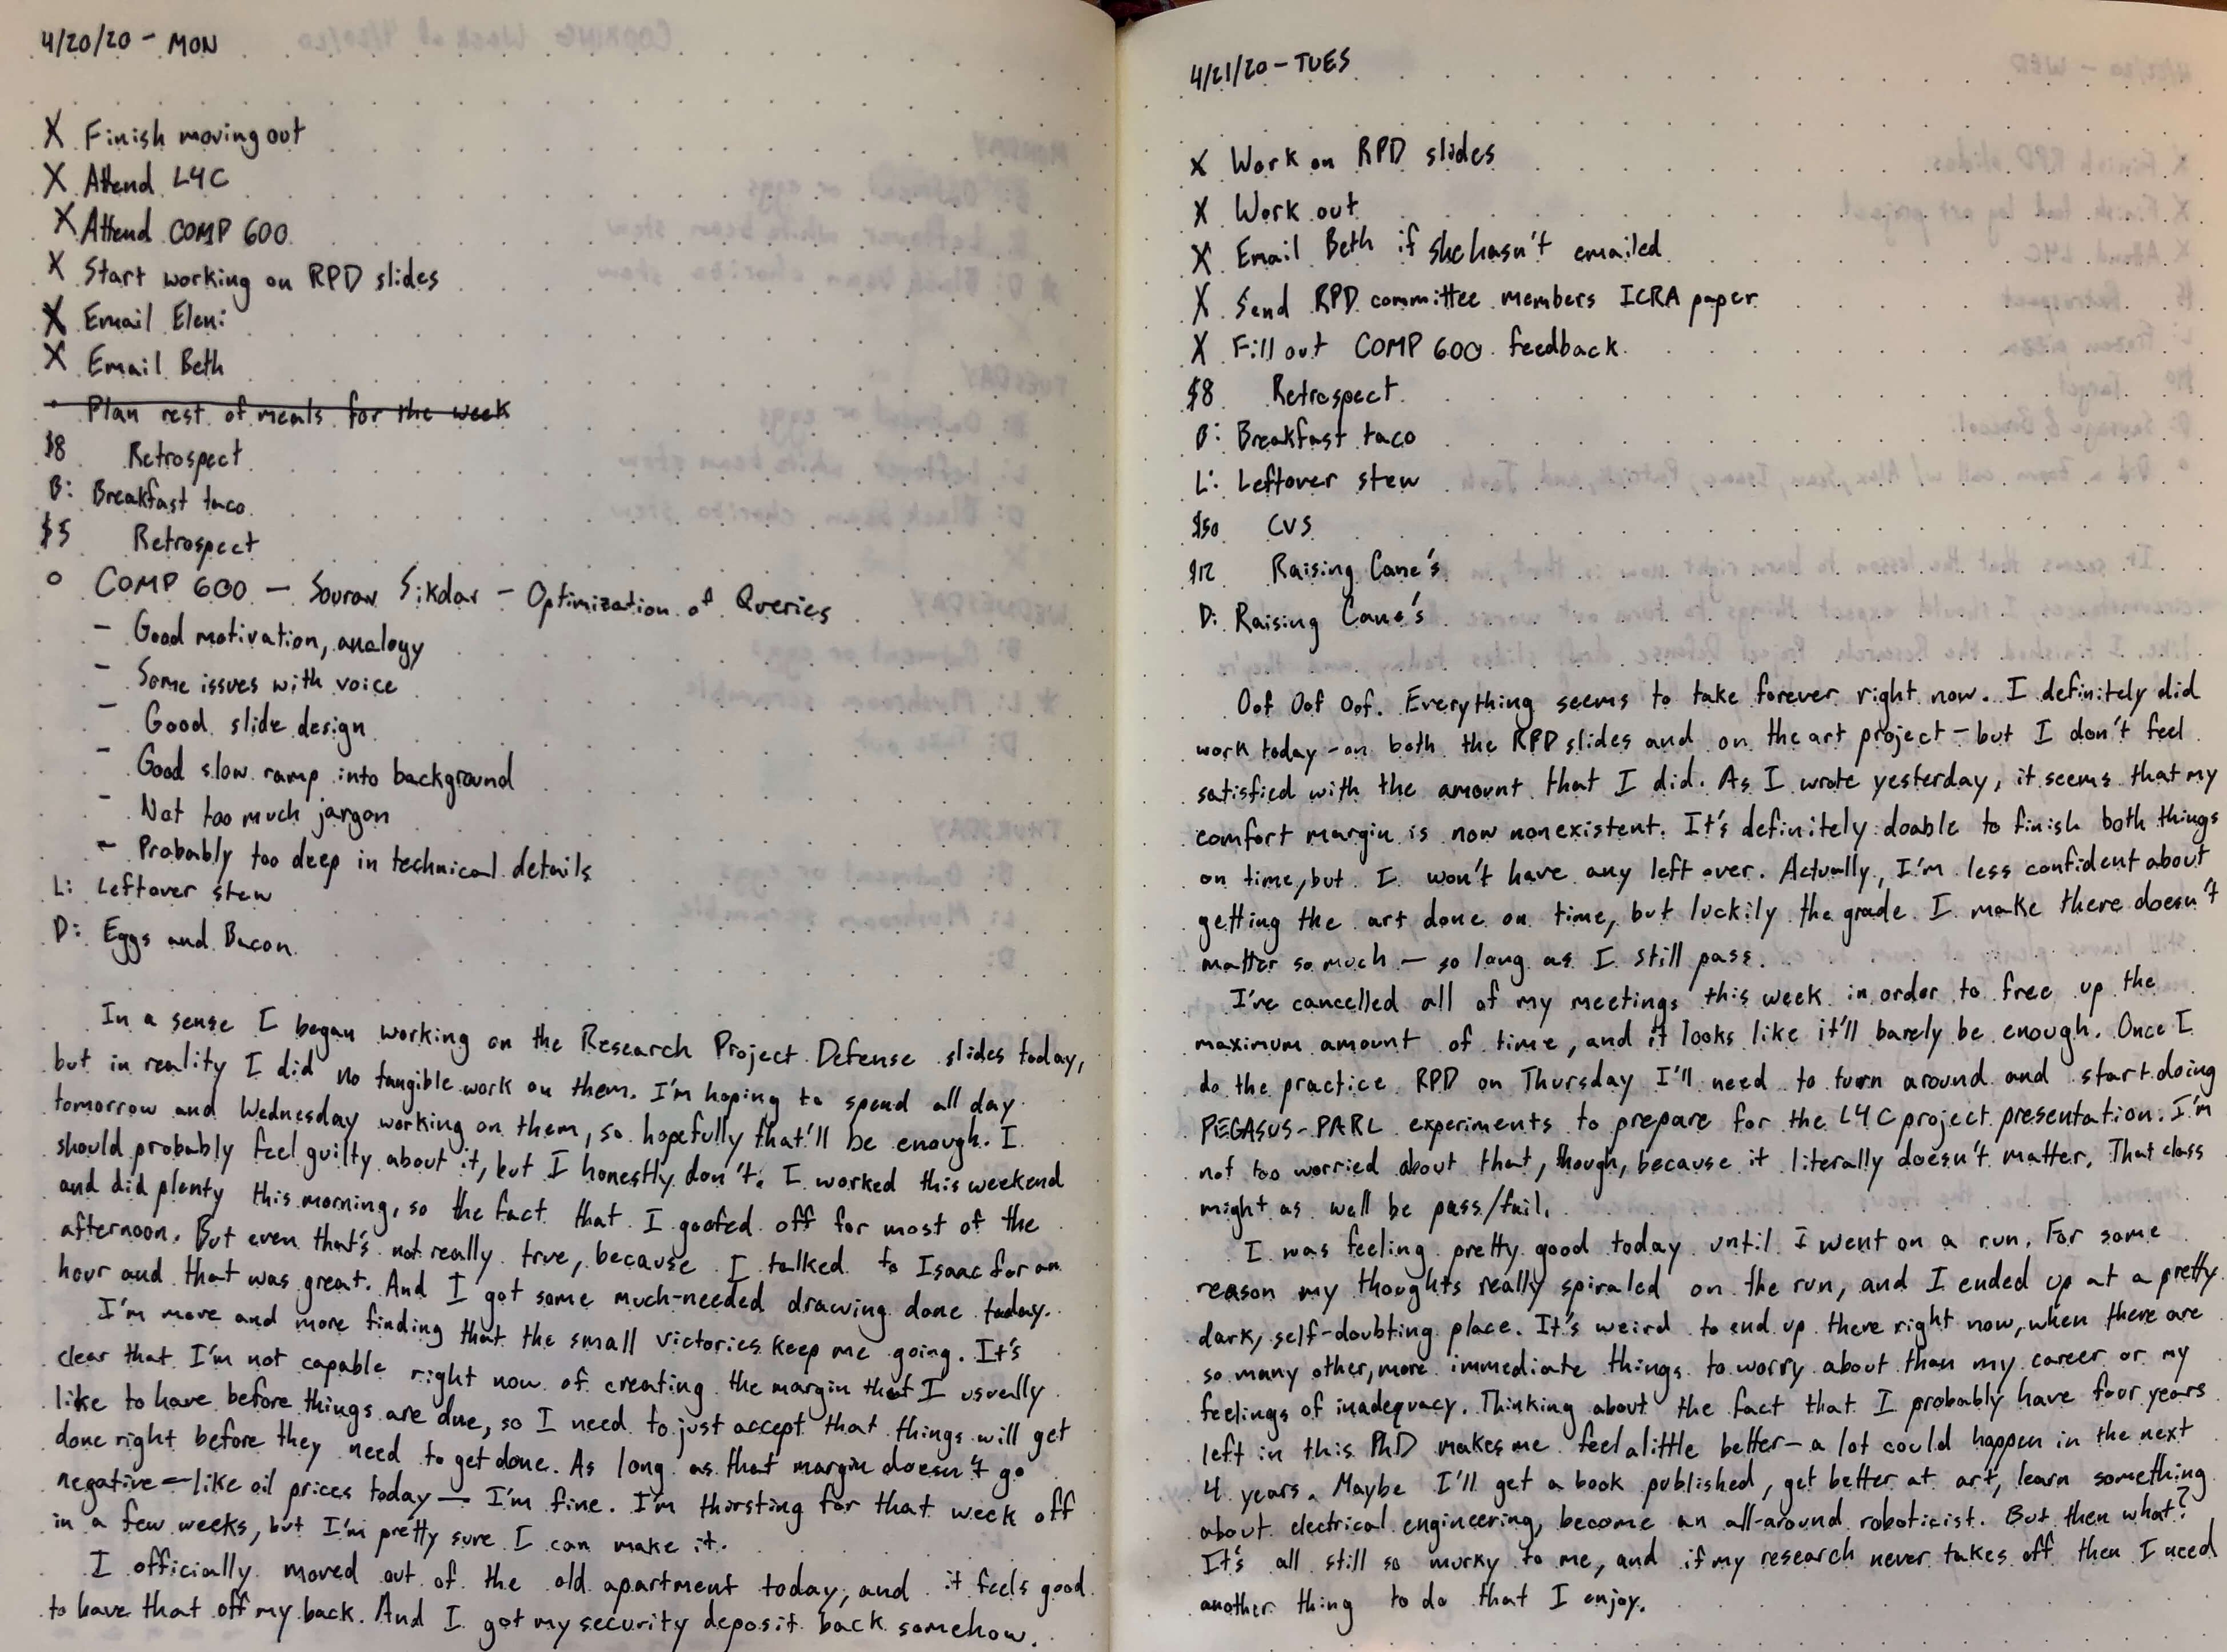 4/20/20 - MON
X Finish moving out
X Attend L4C
X Attend COMP 600
X Start working on RPD slides
X Email Eleni
X Email Beth
• Plan rest of meals for the week
$8 Retrospect
B: Breakfast taco
$5 Retrospect
o COMP 600 — Sourav Sikdar - Optimization of Queries
- Good motivation, analogy
- Some issues with voice
- Good slide design
- Good slow ramp into background
- Not too much jargon
- Probably too deep in technical details
L: Leftover stew
D: Eggs and Bacon
In a sense I began working on the Research Project Defense slides today,
but in reality I did no tangible work on them. I'm hoping to spend all day
tomorrow and Wednesday working on them, so hopefully that'll be enough. I
should probably feel guilty about it, but I honestly don't. I worked this weekend
and did plenty this morning, so the fact that I goofed off for most of the
afternoon. But even that's not really true, because I talked to Isaac for an
hour and that was great. And I got some much-needed drawing done today.
I'm more and more finding that the small victories keep me going. It's
clear that I'm not capable right now of creating the margin that I usually
like to have before things are due, so I need to just accept that things will get
done right before they need to get done. As long as that margin doesn't go
negative — like oil prices today — I'm fine. I'm thirsting for that week off
in a few weeks, but I'm pretty sure I can make it.
I officially moved out of the old apartment today, and it feels good
to have that off my back. And I got my security deposit back somehow.
4/21/20 - TUES
X Work on RPD slides
X Work out
X Email Beth if she hasn't emailed
X Send RPD committee members ICRA paper
X Fill out COMP 600 feedback
$8 Retrospect
B: Breakfast taco
L: Leftover stew
$50 CVS
$12 Raising Cane's
D: Raising Cane's
Oof Oof Oof. Everything seems to take forever right now. I definitely did
work today - on both the RPD slides and on the art project - but I don't feel
satisfied with the amount that I did. As I wrote yesterday, it seems that my
comfort margin is now nonexistent. It's definitely doable to finish both things
on time, but I won't have any left over. Actually, I'm less confident about
getting the art done on time, but luckily the grade I make there doesn't
matter so much — so long as I still pass.
I've cancelled all of my meetings this week in order to free up the
maximum amount of time, and it looks like it'll barely be enough. Once I
do the practice RPD on Thursday I'll need to turn around and start doing
PEGASUS-PARL experiments to prepare for the L4C project presentation. I'm
not too worried about that, though, because it literally doesn't matter. That class
might as well be pass/fail.
I was feeling pretty good today until I went on a run. For some
reason my thoughts really spiraled on the run, and I ended up at a pretty
dark, self-doubting place. It's weird to end up there right now, when there are
so many other, more immediate things to worry about than my career or my
feelings of inadequacy. Thinking about the fact that I probably have four years
left in this PhD makes me feel a little better - a lot could happen in the next
4 years. Maybe I'll get a book published, get better at art, learn something
about electrical engineering, become an all-around roboticist. But then what?
It's all still so murky to me, and if my research never takes off then I need
another thing to do that I enjoy.